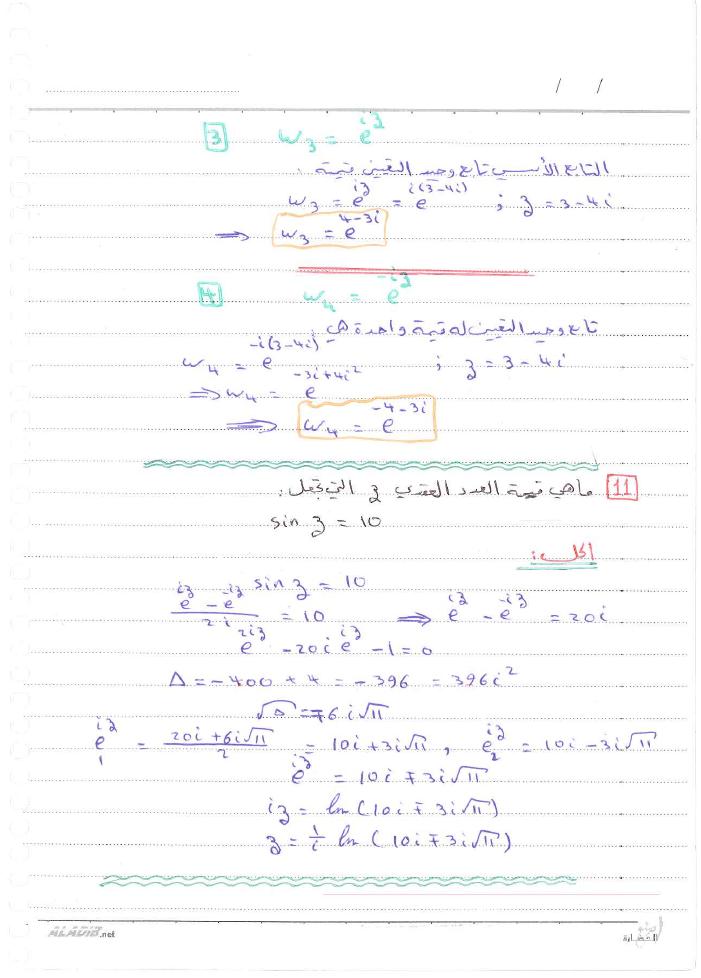 / /
3 w₃ = e^{iz}
التابع الأسي تابع وحيد التعين قيمته :
w₃ = e^{iz} = e^{i(3-4i)} ; z = 3-4i
⟹ w₃ = e^{4-3i}
4 w₄ = e^{-iz}
تابع وحيد التعين له قيمة واحدة هي :
w₄ = e^{-i(3-4i)} ; z = 3-4i
⟹ w₄ = e^{-3i+4i²}
⟹ w₄ = e^{-4-3i}
11 ما هي قيمة العدد العقدي z التي تجعل :
sin z = 10
الحل :
sin z = 10
(e^{iz} - e^{-iz})/2i = 10 ⟹ e^{iz} - e^{-iz} = 20i
e^{2iz} - 20i e^{iz} - 1 = 0
Δ = -400 + 4 = -396 = 396i²
√Δ = ∓6i√11
e₁^{iz} = (20i+6i√11)/2 = 10i+3i√11 , e₂^{iz} = 10i-3i√11
e^{iz} = 10i∓3i√11
iz = ln(10i∓3i√11)
z = 1/i ln(10i∓3i√11)
ALADIB.net